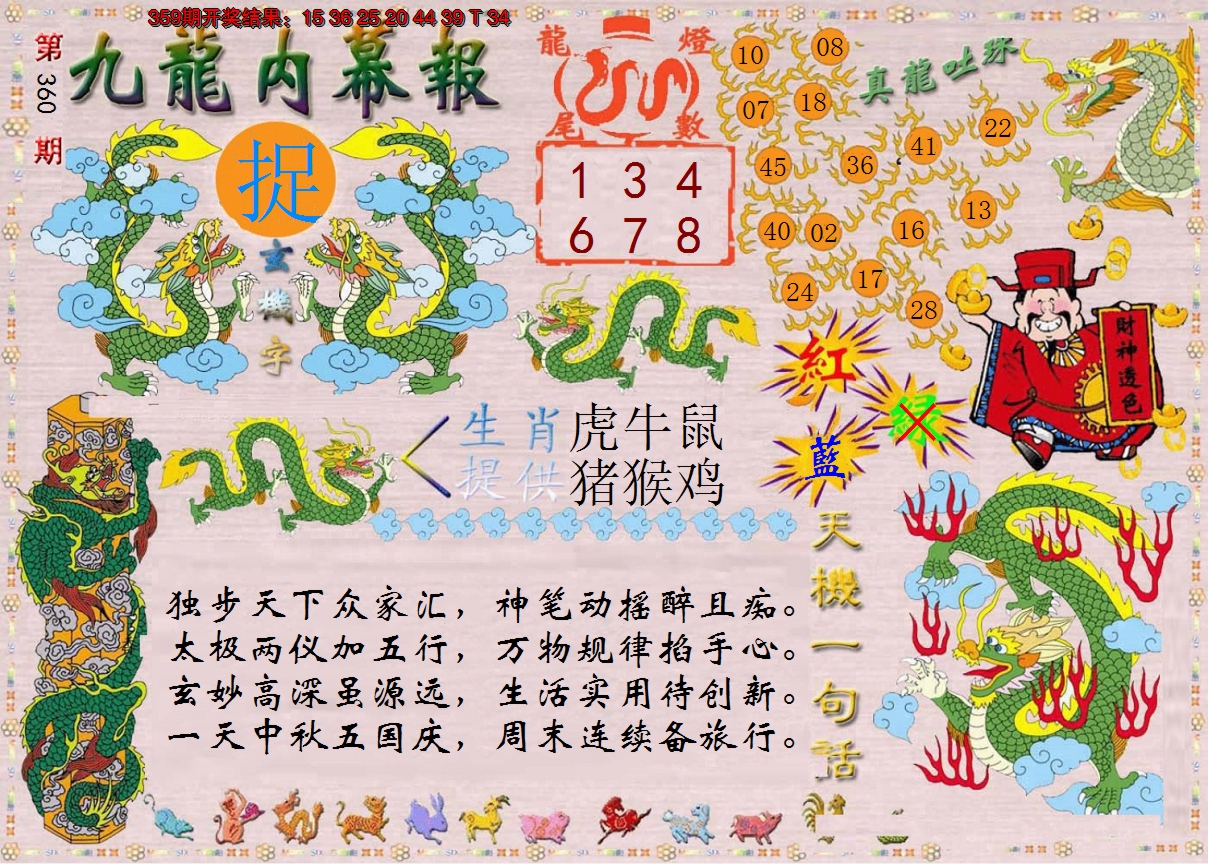 359期开奖结果：15 36 25 20 44 39 T 34
第360期
九龍内幕報
捉
玄機字
龍燈
尾數
1 3 4
6 7 8
真龍吐珠
10 08
07 18
45 36 41 22
40 02 16 13
24 17 28
財神透色
紅
绿
藍
生肖 虎牛鼠
提供 猪猴鸡
天機一句話
独步天下众家汇，神笔动摇醉且痴。
太极两仪加五行，万物规律掐手心。
玄妙高深虽源远，生活实用待创新。
一天中秋五国庆，周末连续备旅行。